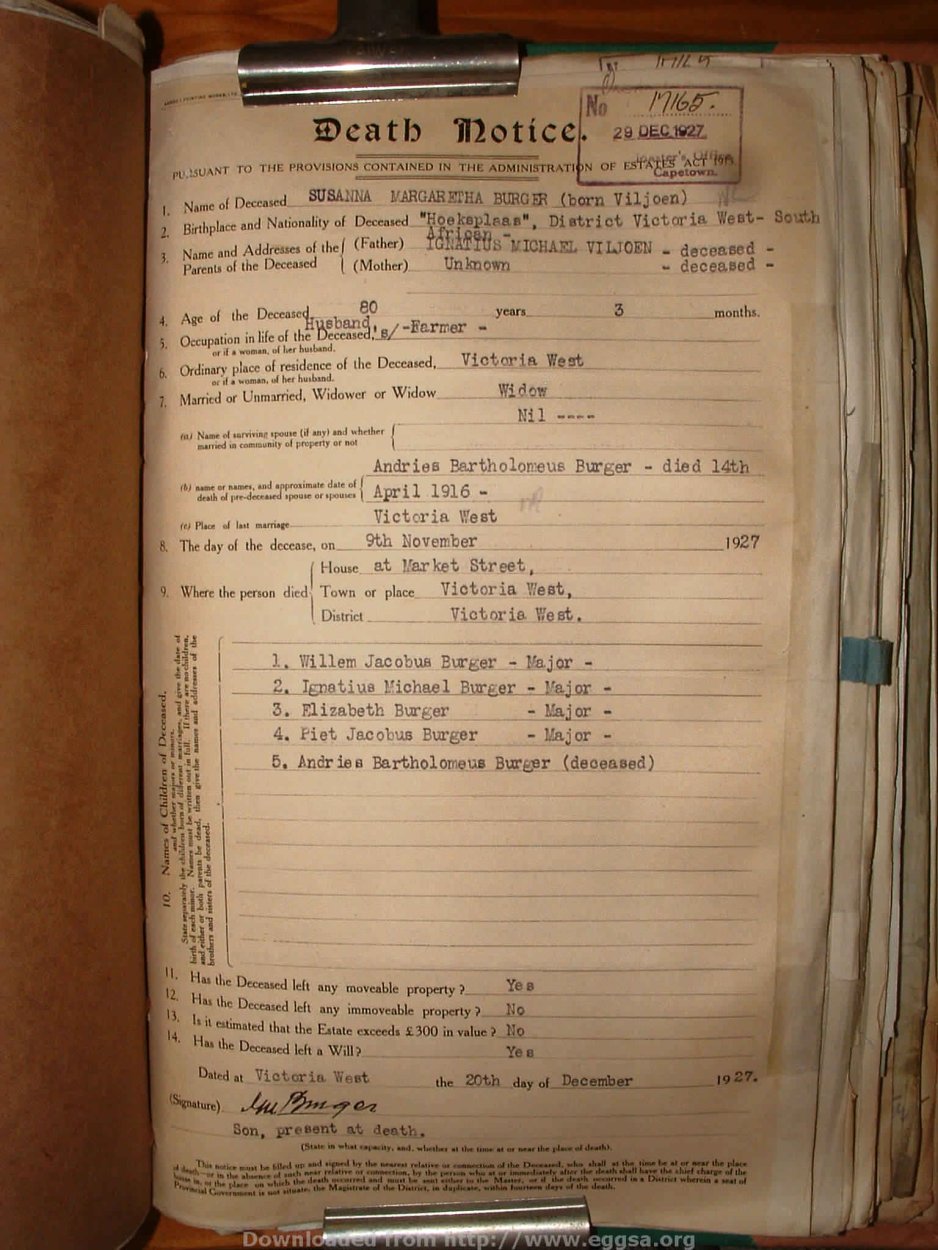 No 17165.
Death Notice.
29 DEC 1927
Master's Office
Capetown.
PURSUANT TO THE PROVISIONS CONTAINED IN THE ADMINISTRATION OF ESTATES ACT 1913.
1. Name of Deceased SUSANNA MARGARETHA BURGER (born Viljoen)
2. Birthplace and Nationality of Deceased "Hoeksplaas", District Victoria West- South
African -
3. Name and Addresses of the (Father) IGNATIUS MICHAEL VILJOEN - deceased -
Parents of the Deceased (Mother) Unknown - deceased -
4. Age of the Deceased 80 years 3 months.
Husband's/-Farmer -
5. Occupation in life of the Deceased,
or if a woman, of her husband.
6. Ordinary place of residence of the Deceased, Victoria West
or if a woman, of her husband.
7. Married or Unmarried, Widower or Widow Widow
Nil ----
(a) Name of surviving spouse (if any) and whether
married in community of property or not
Andries Bartholomeus Burger - died 14th
(b) name or names, and approximate date of
death of pre-deceased spouse or spouses April 1916 -
(c) Place of last marriage Victoria West
8. The day of the decease, on 9th November 1927
House at Market Street,
9. Where the person died Town or place Victoria West,
District Victoria West.
10. Names of Children of Deceased,
and whether majors or minors.
State separately the children born of different marriages, and give the date of
birth of each minor. Names must be written out in full. If there are no children,
and either or both parents be dead, then give the names and addresses of the
brothers and sisters of the deceased.
1. Willem Jacobus Burger - Major -
2. Ignatius Michael Burger - Major -
3. Elizabeth Burger - Major -
4. Piet Jacobus Burger - Major -
5. Andries Bartholomeus Burger (deceased)
11. Has the Deceased left any moveable property? Yes
12. Has the Deceased left any immoveable property? No
13. Is it estimated that the Estate exceeds £300 in value? No
14. Has the Deceased left a Will? Yes
Dated at Victoria West the 20th day of December 1927.
(Signature) Burger
Son, present at death.
(State in what capacity, and, whether at the time at or near the place of death).
This notice must be filled up and signed by the nearest relative or connection of the Deceased, who shall at the time be at or near the place
of death—or in the absence of such near relative or connection, by the person who at or immediately after the death shall have the chief charge of the
house in, or the place on which the death occurred and must be sent either to the Master, or if the death occurred in a District wherein a seat of
Provincial Government is not situate, the Magistrate of the District, in duplicate, within fourteen days of the death.
Downloaded from http://www.eggsa.org